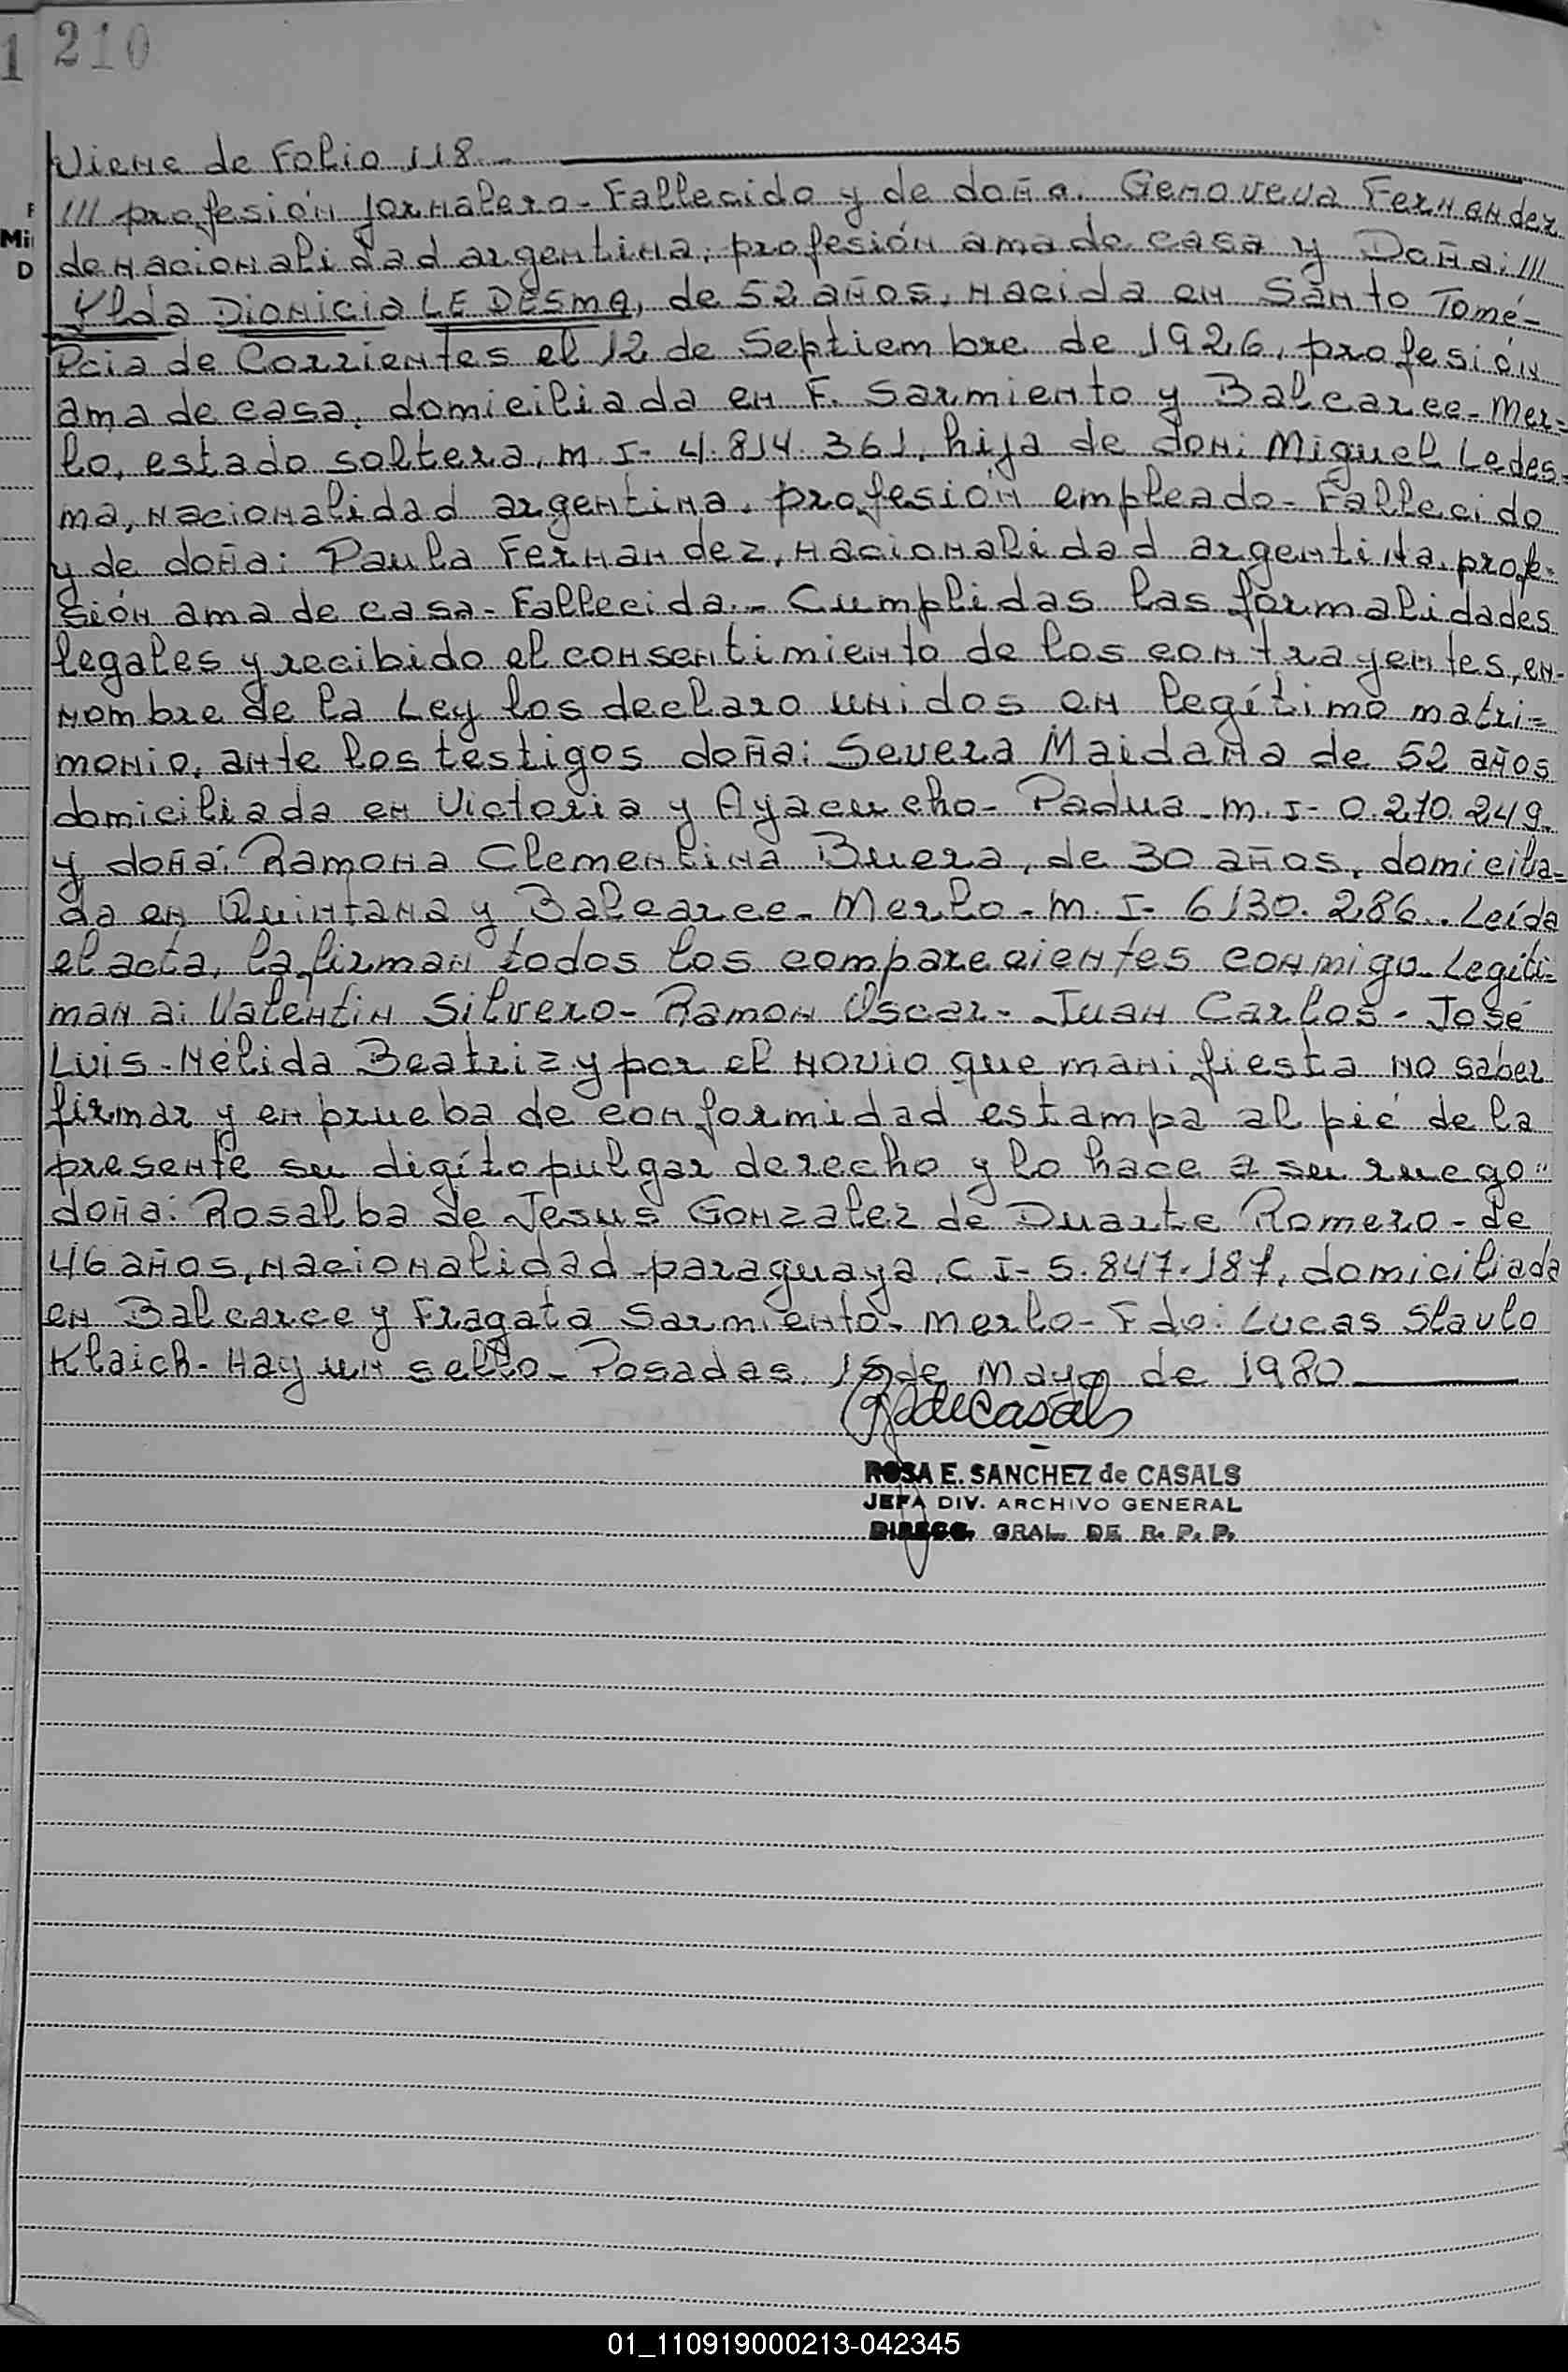 1 210
Viene de Folio 118.-
F
/// profesión jornalero-Fallecido y de doña. Genoveva Fernandez
Mi
de nacionalidad argentina, profesión ama de casa y Doña: ///
D
Ylda Dionicia LEDESMA, de 52 años, nacida en Santo Tomé-
Pcia de Corrientes el 12 de Septiembre de 1926, profesión
ama de casa, domiciliada en F. Sarmiento y Balcarce-Mer=
lo, estado soltera, m. I- 4.814.361, hija de don: Miguel Ledes=
ma, nacionalidad argentina, profesión empleado-Fallecido
y de doña: Paula Fernandez, nacionalidad argentina, profe=
sión ama de casa-Fallecida.- Cumplidas las formalidades
legales y recibido el consentimiento de los contrayentes, en-
nombre de la Ley los declaro unidos en legítimo matri=
monio, ante los testigos doña: Severa Maidana de 52 años
domiciliada en Victoria y Ayacucho- Padua-m. I- 0.210.249.
y doña: Ramona Clementina Buera, de 30 años, domicilia=
da en Quintana y Balcarce-Merlo-m. I- 6130.286.. Leída
el acta, la firman todos los comparecientes conmigo-Legiti=
man a: Valentin Silvero-Ramon Oscar-Juan Carlos-José
Luis-Nélida Beatriz y por el novio que manifiesta no saber
firmar y en prueba de conformidad estampa al pié de la
presente su digíto pulgar derecho y lo hace a su ruego"
doña: Rosalba de Jesus Gonzalez de Duarte Romero-de
46 años, nacionalidad paraguaya, C I- 5.847.187, domiciliada
en Balcarce y Fragata Sarmiento-Merlo-Fdo: Lucas Slavlo
Klaich-Hay un sello-Posadas, 15 de Mayo de 1980
ROSA E. SANCHEZ de CASALS
JEFA DIV. ARCHIVO GENERAL
DIRECC. GRAL. DE R. P. P.
01_110919000213-042345